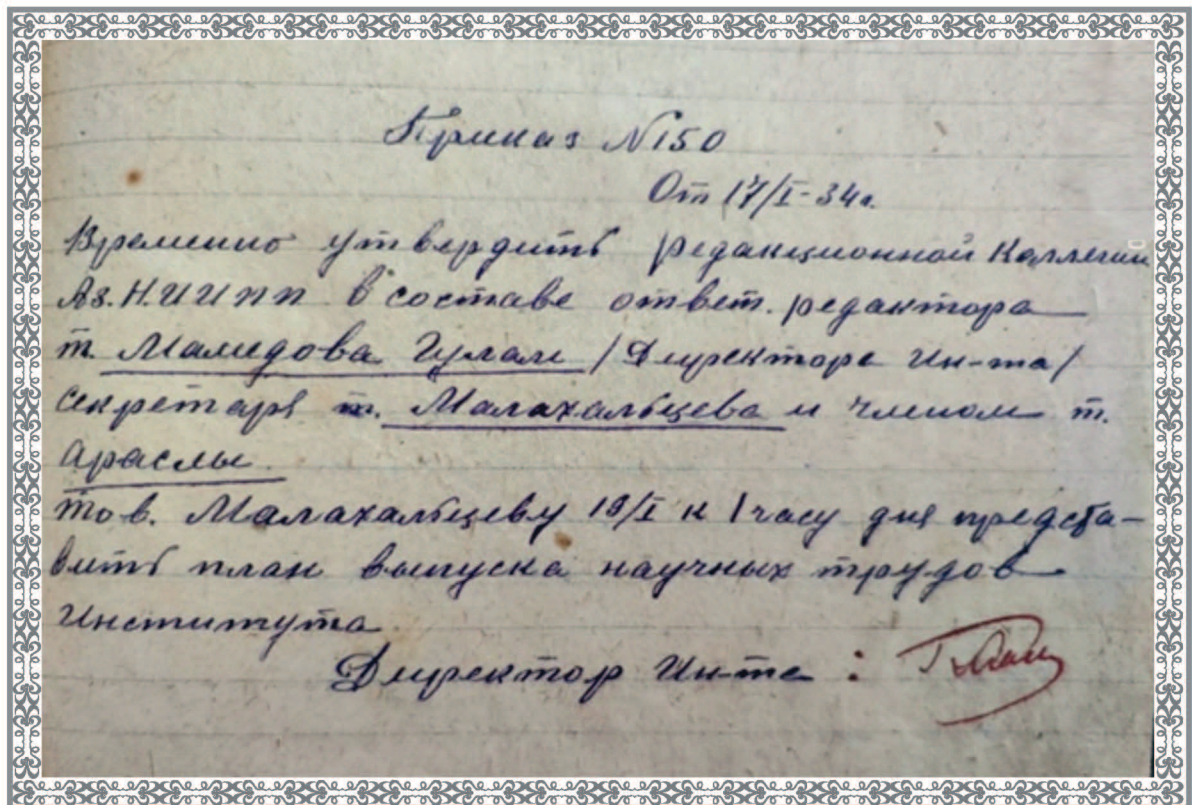 Приказ N150
От 17/I-34г.
Временно утвердить редакционной Коллегии
Аз.Н.ИИПП в составе ответ. редактора
т. Мамедова Гулам /Директора Ин-та/
Секретаря т. Малахальцева и членом т.
Араслы.
Тов. Малахальцеву 19/I к 1 часу дня предста-
вить план выпуска научных трудов
Института.
Директор Ин-та :